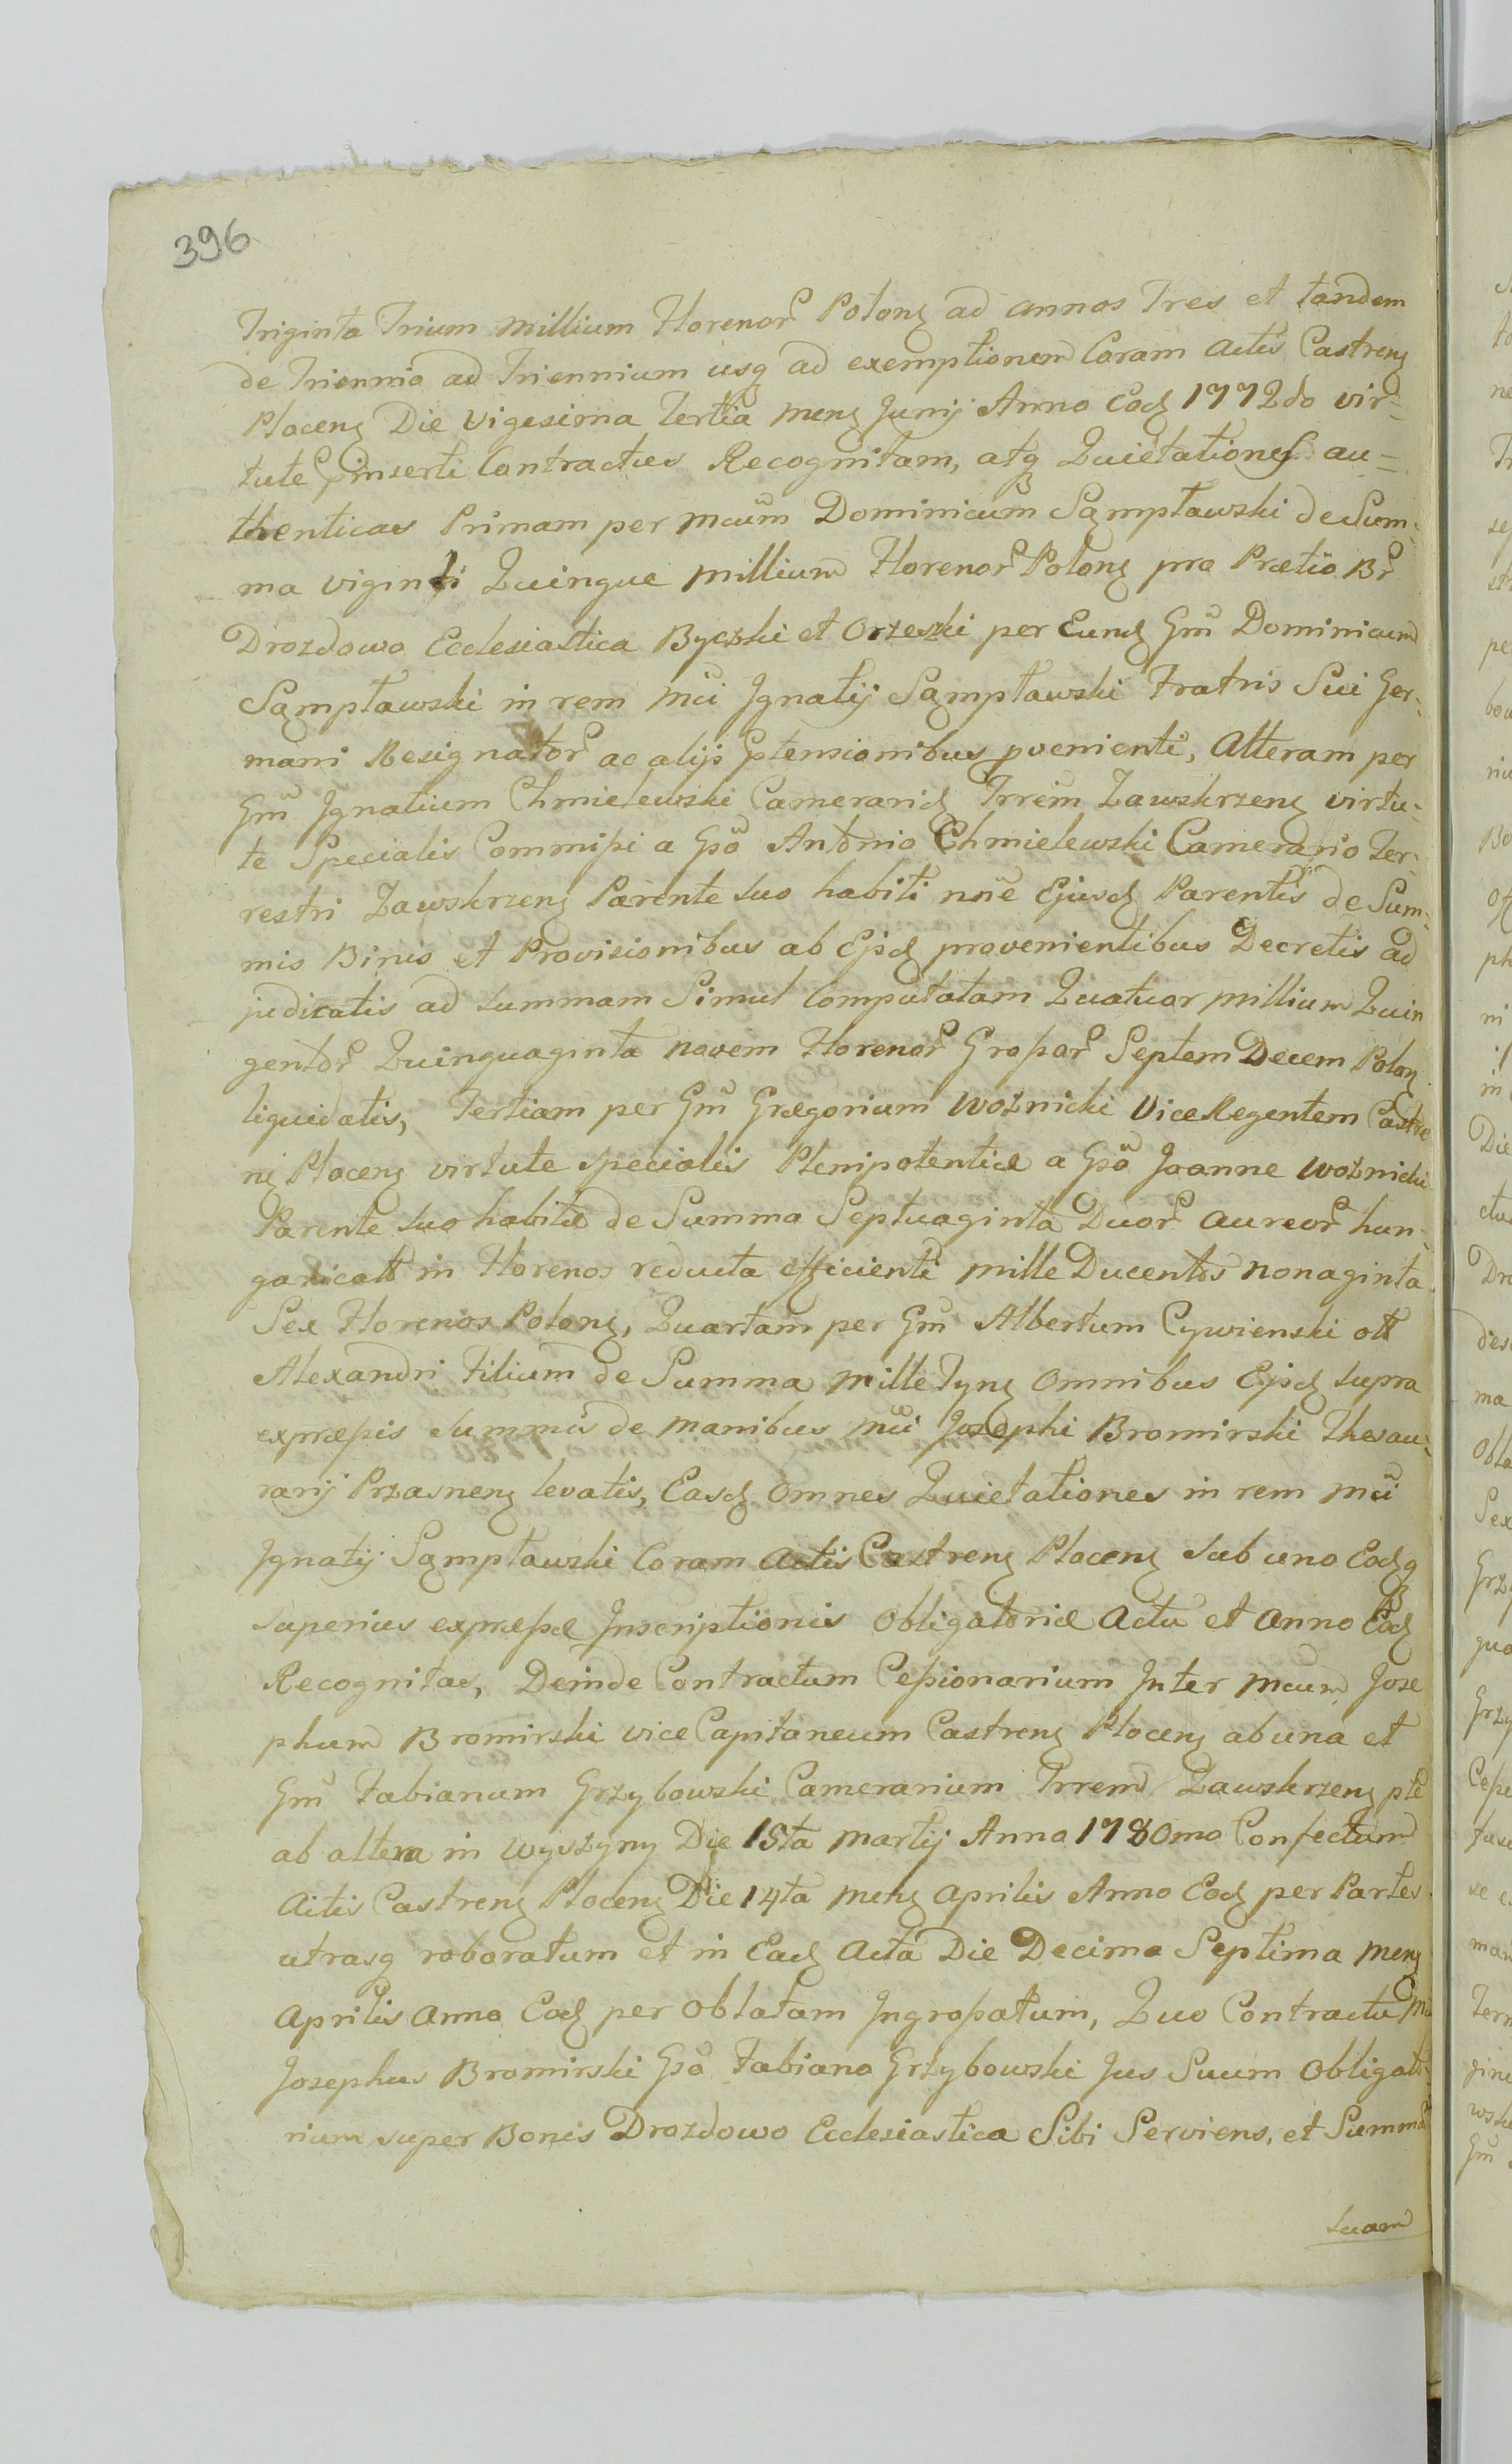 396
Triginta Trium Millium Florenor Polonꝫ ad annos Tres et tandem
de Triennio ad Triennium usqꝫ ad exemptionem Coram Actis Castrenꝫ
Plocenꝫ Die Vigesima Tertia Menꝫ Junij Anno Eodꝫ 1772do vir-
tute pinserti Contractus Recognitam, atqꝫ Quietationes au=
thenticas Primam per Mcum Dominicum Sampławski de Sum-
ma viginti Quinque Millium Florenor Polonꝫ pro Prætio Br
Drozdowo Ecclesiastica Byczki et Orzeszki per Eundꝫ Gm Dominicum
Sampławski in rem Mci Ignatij Sampławski Fratris Sui Ger-
mani Resignator ac alijs ptensionibus pvenienti, Alteram per
Gm Ignatium Chmielewski Cameraridꝫ Trrem Zawskrzenꝫ virtu-
te Specialis Commissi a Gso Antonio Chmielewski Camerario Ter-
restri Zawskrzenꝫ Parente suo habiti nne Ejusdꝫ Parentis de Sum-
mis Binis et Provisionibus ab Ejsdꝫ provenientibus Decretis ad
judicatis ad summam Simul Computatam Quatuor millium Quin
gentor Quinquaginta novem Florenor Grossor Septem Decem Polonꝫ
liquidatis, Tertiam per Gm Gregorium Woznicki Vice Regentem Castre
nꝫ Plocenꝫ virtute specialis Plenipotentiæ a Gso Joanne Woznicki
Parente suo habitæ de Summa Septuaginta Duor aureor hun-
garicall in Florenos reducta efficienti mille Ducentos nonaginta
Sex Florenos Polonꝫ, Quartam per Gm Albertum Cywienski oll
Alexandri Filium de Summa mille Tynꝫ Omnibus Ejsdꝫ supra
expræssis Summis de manibus Mci Josephi Bromirski Thesau-
rarij Przasnenꝫ levatis, Easdꝫ Omnes Quietationes in rem Mci
Ignatij Sampławski Coram Actis Castrenꝫ Plocenꝫ sub uno Eodꝫqꝫ
superius expræssæ Inscriptionis Obligatoriæ Actu et Anno Eodꝫ
Recognitas, Deinde Contractum Cessionarium Inter Mcum Jose
phum Bromirski vice Capitaneum Castrenꝫ Plocenꝫ ab una et
Gm Fabianum Grzybowski Camerarium Trrem Zawskrzenꝫ pte
ab altera in Wyszyny Die 15ta Martij Anno 1780mo Confectum
Actis Castrenꝫ Plocenꝫ Die 14ta Menꝫ Aprilis Anno Eodꝫ per Partes
utrasqꝫ roboratum et in Eadꝫ Acta Die Decima Septima Menꝫ
Aprilis Anno Eodꝫ per Oblatam Ingrossatum, Quo Contractu
Josephus Bromirski Gso Fabiano Grzybowski Jus Suum Obligato-
rium super Bonis Drozdowo Ecclesiastica Sibi Serviens, et Summa
suam